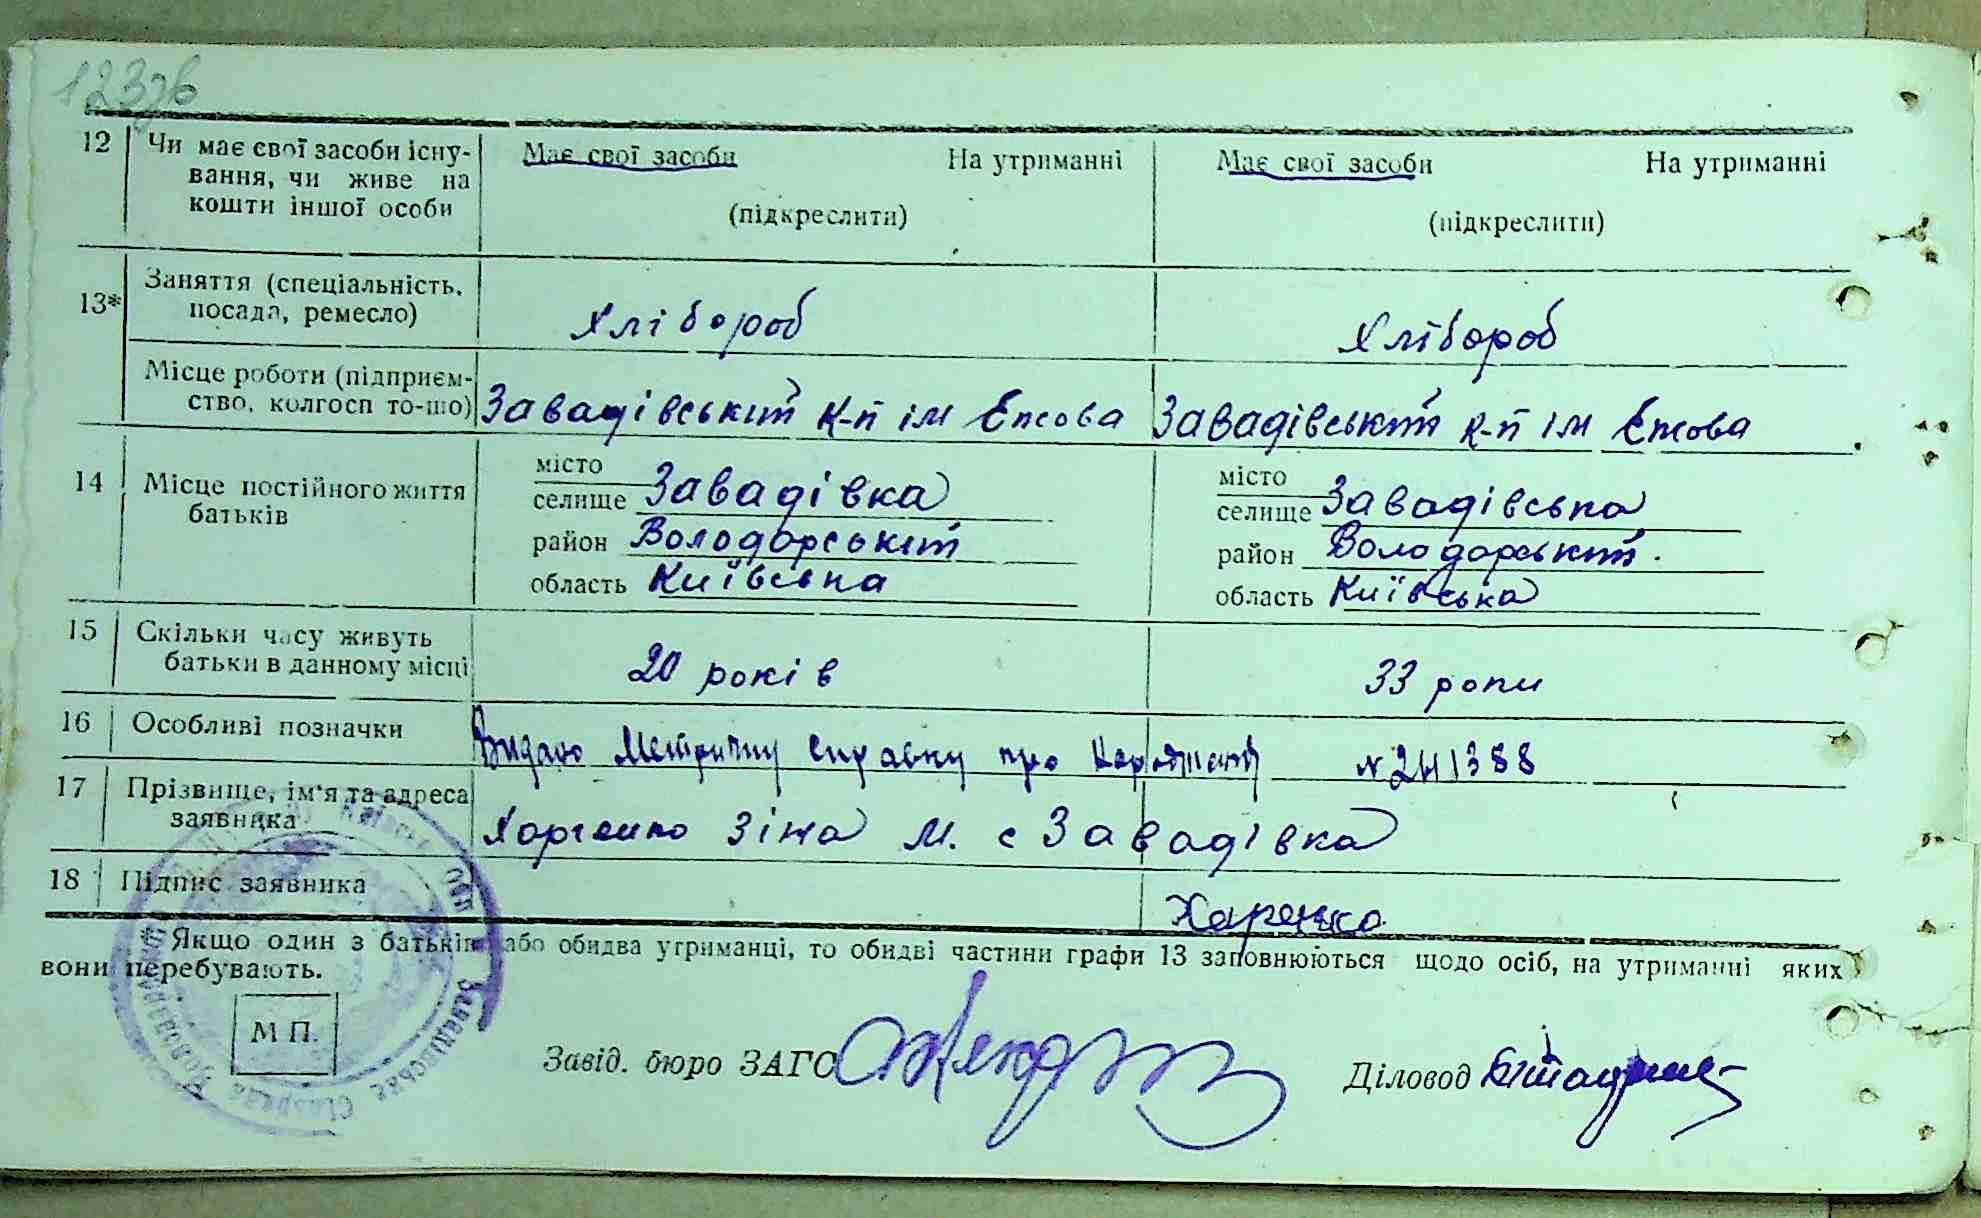 123зв
12 Чи має свої засоби існу-
вання, чи живе на
кошти іншої особи
Має свої засоби На утриманні
(підкреслити)
Має свої засоби На утриманні
(підкреслити)
13* Заняття (спеціальність,
посада, ремесло)
Хлібороб
Хлібороб
Місце роботи (підприєм-
ство, колгосп то-що)
Завадівський к-п ім Єжова
Завадівський к-п ім Єжова
14 Місце постійного життя
батьків
місто
селище Завадівка
район Володарський
область Київська
місто
селище Завадівська
район Володарський.
область Київська
15 Скільки часу живуть
батьки в данному місці
20 років
33 роки
16 Особливі позначки
Видано Метричну справку про Народження № 241388
17 Прізвище, ім'я та адреса
заявника
Харченко Зіна М. с Завадівка
18 Підпис заявника
Харенко
* Якщо один з батьків або обидва утриманці, то обидві частини графи 13 заповнюються щодо осіб, на утриманні яких
вони перебувають.
М П.
Завід. бюро ЗАГС
Діловод